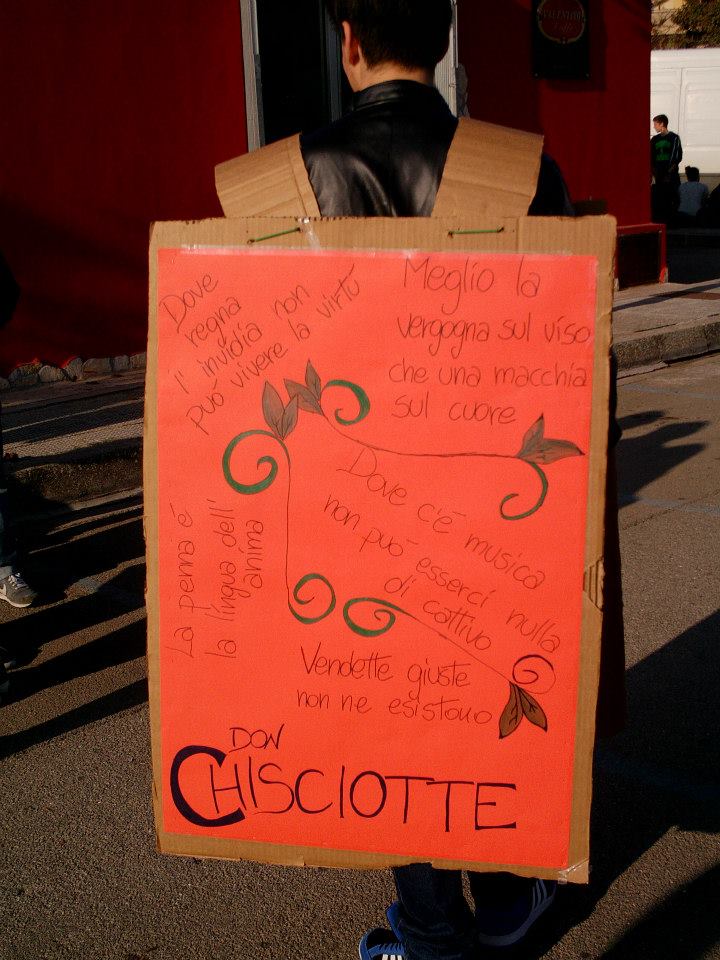 VALENTINO
Dove
regna
l' invidia non
può vivere la virtù
Meglio la
vergogna sul viso
che una macchia
sul cuore
Dove c'è musica
non può esserci nulla
di cattivo
La penna é
la lingua dell'
anima
Vendette giuste
non ne esistono
DON
CHISCIOTTE